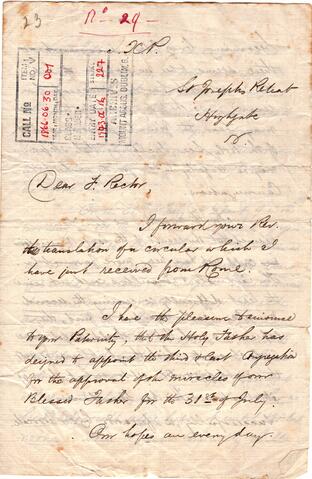 23
No 29
X.P.
CALL NO
1866.06.30
001
ENTRY DATE
227
ARCHIVES
MOUNT ARGUS, DUBLIN 6.
St Josephs Retreat
Highgate
N.
Dear F. Rector
I forward your Rev.
the translation of a circular which I
have just received from Rome.
I have the pleasure to announce
to your Paternity, that the Holy Father has
deigned to appoint the third & last Congregation
for the approval of the miracles of our
Blessed Father for the 31st of July.
Our hopes are every day.